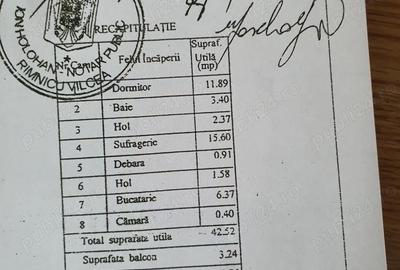 RECAPITULAȚIE
ION HOLOHAN * NOTAR PUBLIC
RIMNICU VILCEA
Nr. Cam. Felul încăperii Supraf. Utilă (mp)
Dormitor 11.89
2 Baie 3.40
3 Hol 2.37
4 Sufragerie 15.60
5 Debara 0.91
6 Hol 1.58
7 Bucatarie 6.37
8 Cămară 0.40
Total suprafate utila 42.52
Suprafata balcon 3.24